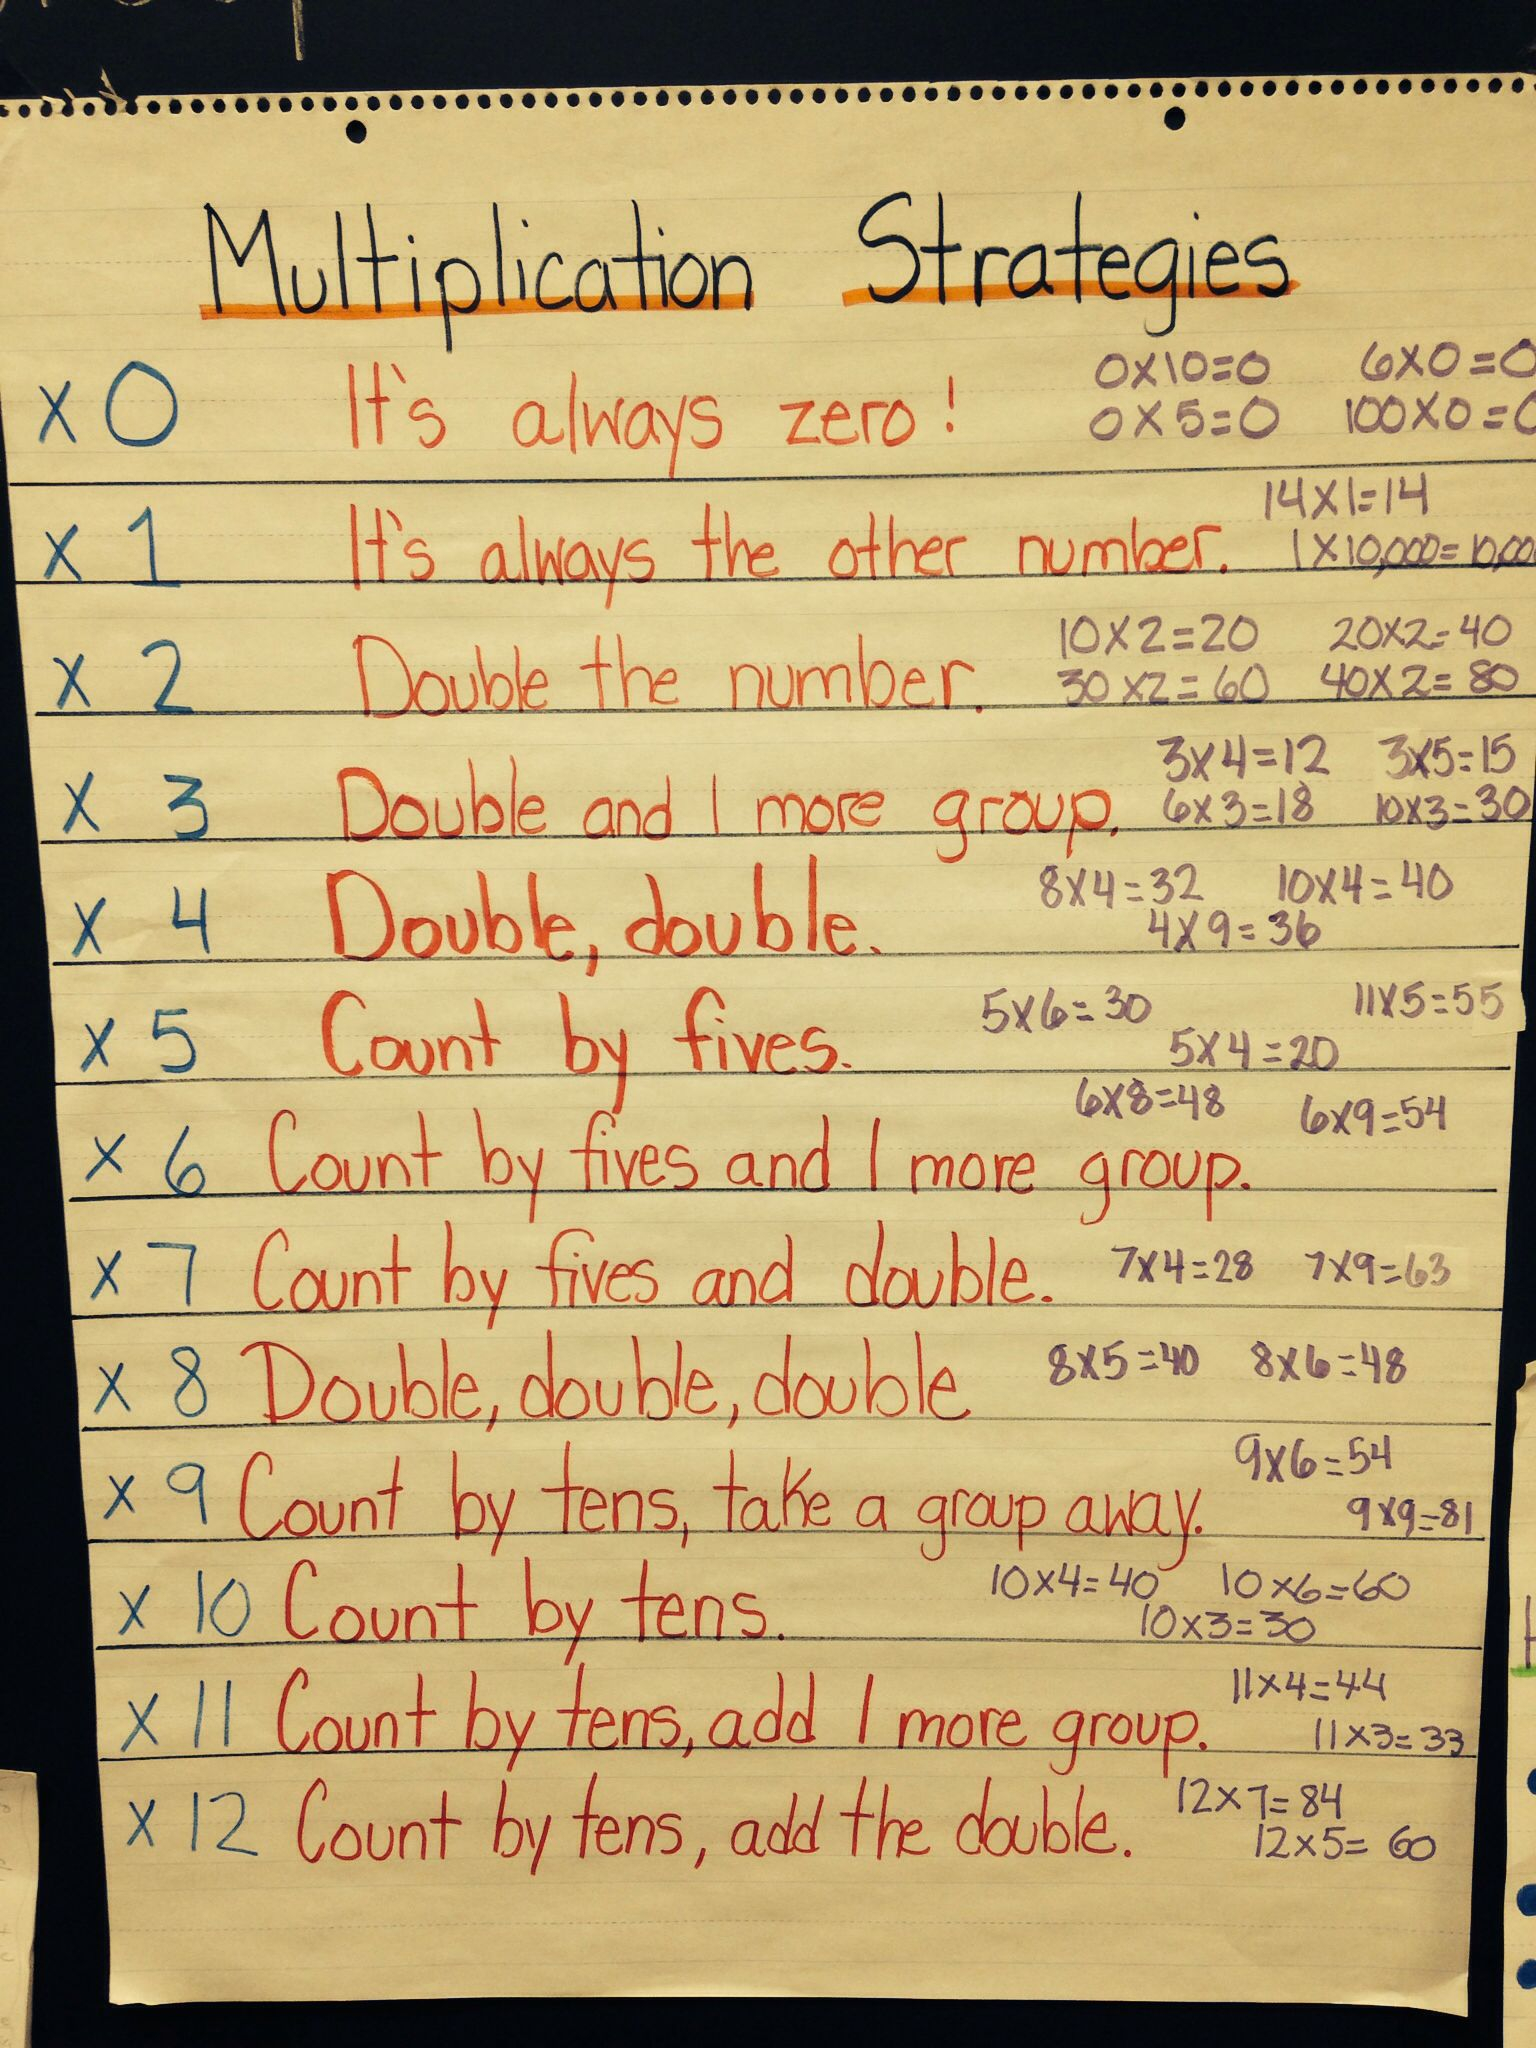 Multiplication Strategies
x 0 It's always zero! 0x10=0 6x0=0
0x5=0 100x0=0
x 1 It's always the other number. 14x1=14
1x10,000=10,00
x 2 Double the number. 10x2=20 20x2=40
30x2=60 40x2=80
x 3 Double and 1 more group. 3x4=12 3x5=15
6x3=18 10x3=30
x 4 Double, double. 8x4=32 10x4=40
4x9=36
x 5 Count by fives. 5x6=30 11x5=55
5x4=20
x 6 Count by fives and 1 more group. 6x8=48 6x9=54
x 7 Count by fives and double. 7x4=28 7x9=63
x 8 Double, double, double 8x5=40 8x6=48
x 9 Count by tens, take a group away. 9x6=54
9x9=81
x 10 Count by tens. 10x4=40 10x6=60
10x3=30
x 11 Count by tens, add 1 more group. 11x4=44
11x3=33
x 12 Count by tens, add the double. 12x7=84
12x5=60